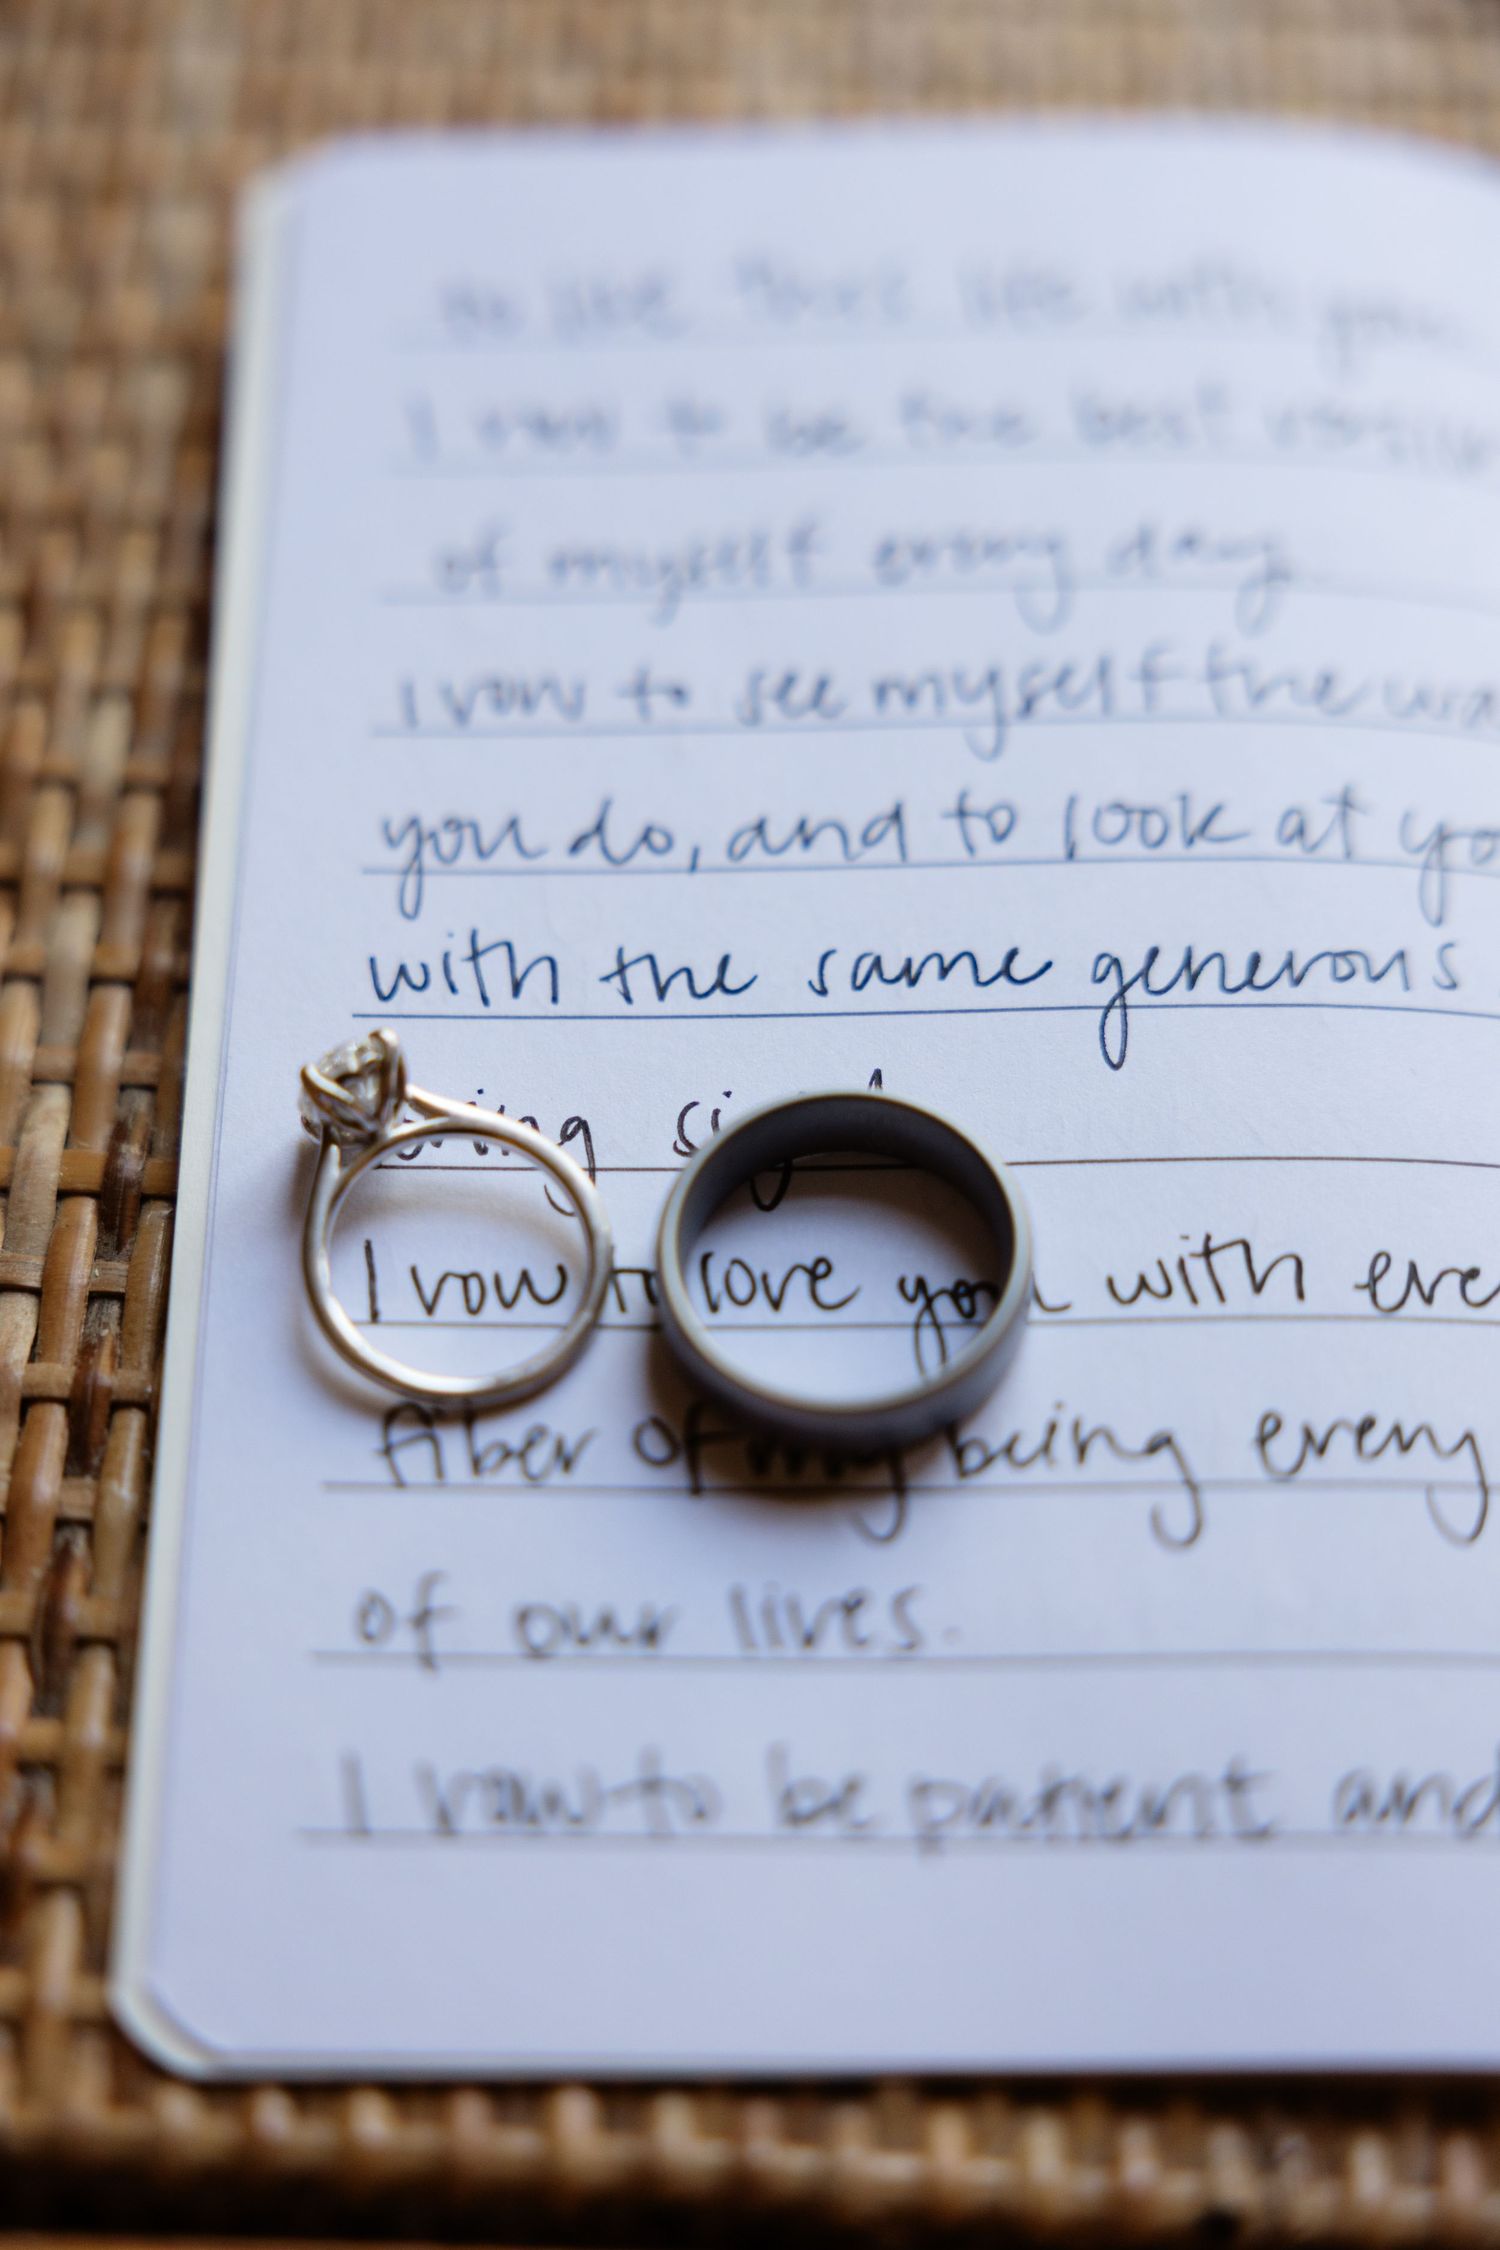 to live this life with you.
I vow to be the best version
of myself every day.
I vow to see myself the wa
you do, and to look at yo
with the same generous
I vow to love you with eve
fiber of my being every
of our lives.
I vow to be patient and